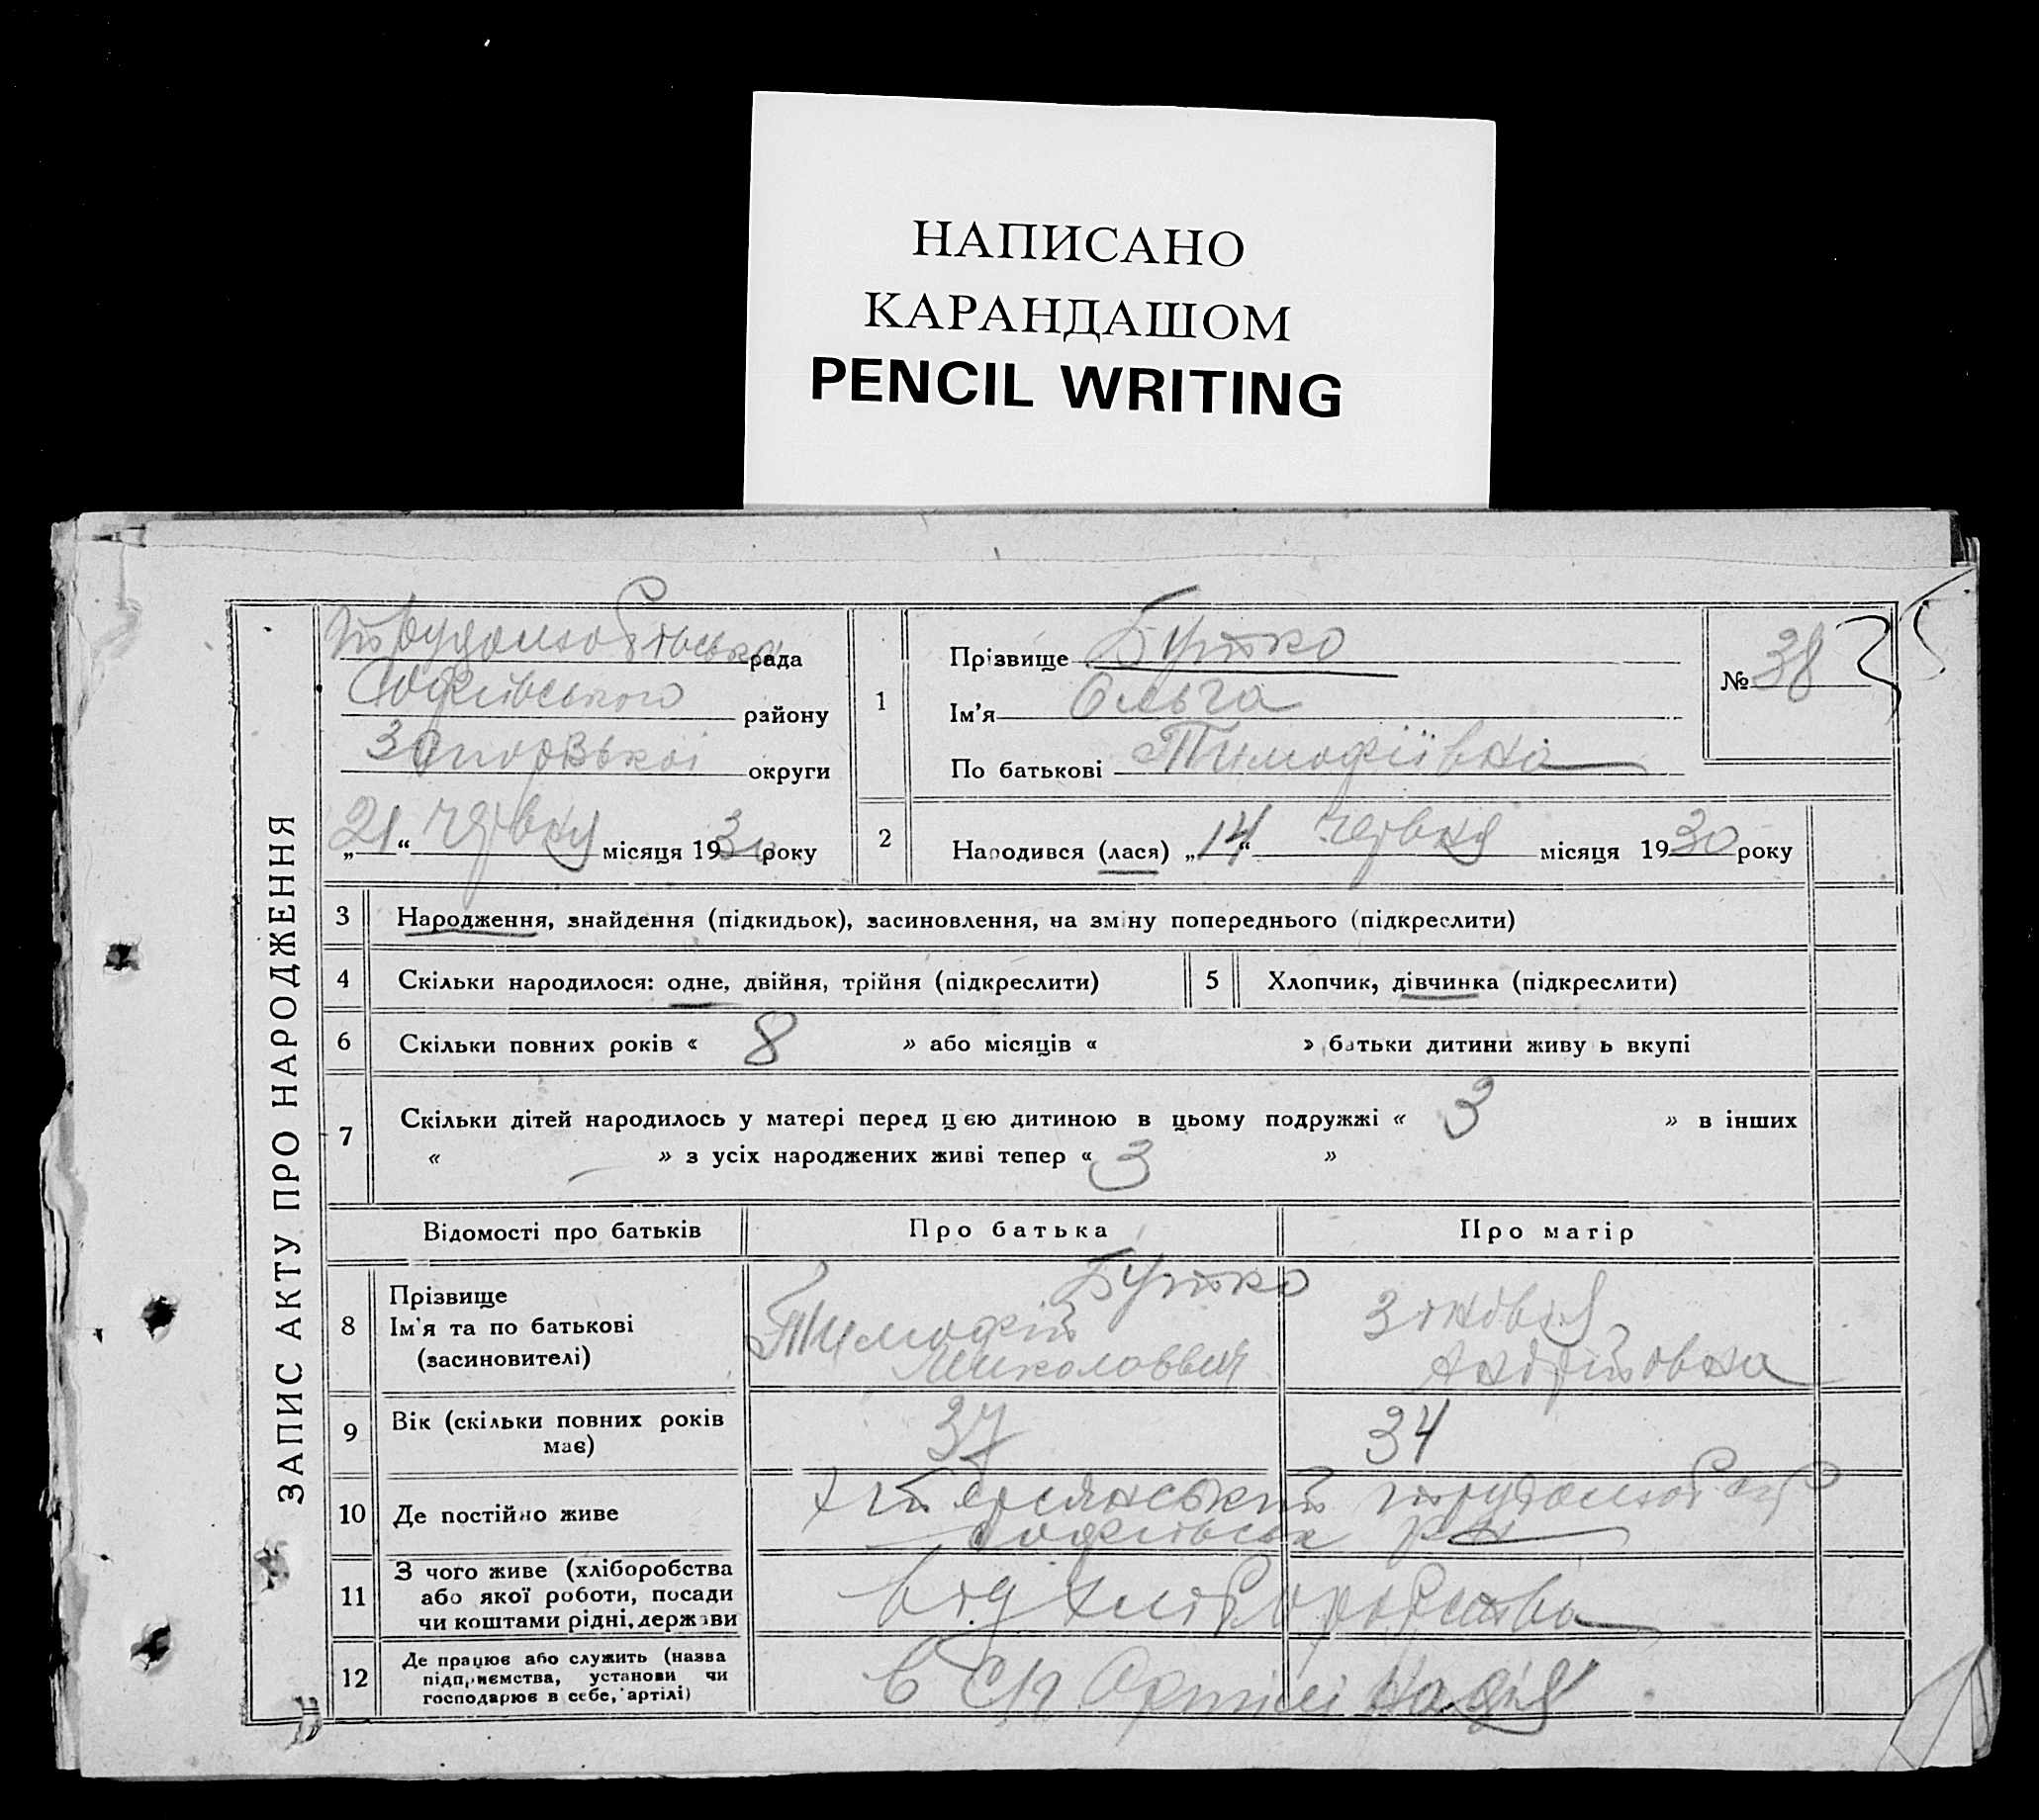 НАПИСАНО
КАРАНДАШОМ
PENCIL WRITING
ЗАПИС АКТУ ПРО НАРОДЖЕННЯ
Трудолюбівська рада
Софіївського району
Запорізької округи
„21“ червня місяця 1930 року
1
Прізвище Бутко
Ім'я Ольга
По батькові Тимофіївна
№ 38
25
2
Народився (лася) „14“ червня місяця 1930 року
3 Народження, знайдення (підкидьок), засиновлення, на зміну попереднього (підкреслити)
4 Скільки народилося: одне, двійня, трійня (підкреслити) 5 Хлопчик, дівчинка (підкреслити)
6 Скільки повних років « 8 » або місяців « » батьки дитини живуть вкупі
7 Скільки дітей народилось у матері перед цією дитиною в цьому подружжі « 3 » в інших
« — » з усіх народжених живі тепер « 3 »
Відомості про батьків Про батька Про матір
8 Прізвище
Ім'я та по батькові
(засиновителі)
Бутко
Тимофій
Миколаввич
Зіновія
Андрійовна
9 Вік (скільки повних років
має)
37 34
10 Де постійно живе
Трудолюбів
Софіївськ р-н
11 З чого живе (хліборобства
або якої роботи, посади
чи коштами рідні, держави
від хліборобства
12 Де працює або служить (назва
підприємства, установи чи
господарює в себе, артілі)
в С/г Артілі Надія